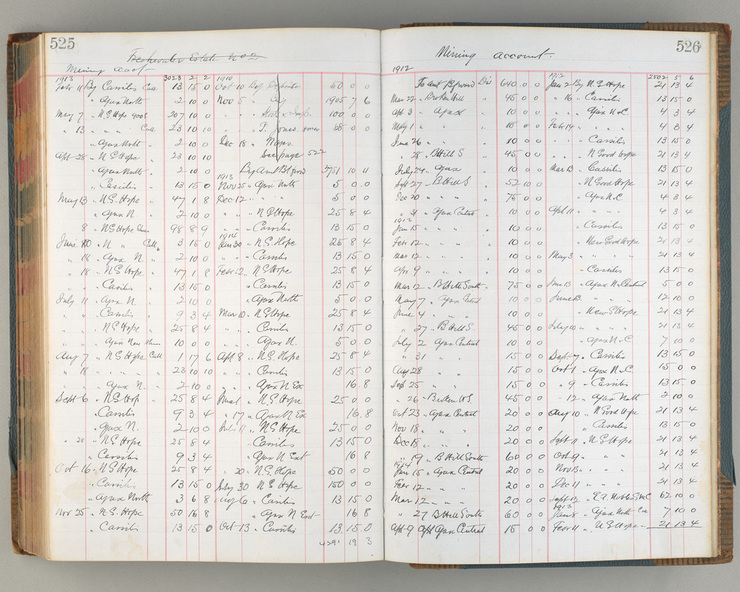 525
Mining Acct
1913 3023 2 2
Febr 11 By Camilis Call 13 15 0
" Ajax North " 2 10 0
May 7 " N. G Hope 207 10 0
" 13 " " " Call 23 10 10
" Ajax North " 2 10 0
Apr 28 " N. G Hope 23 10 10
" Ajax North " 2 10 0
" Camilis 13 15 0
May 13 " N. G Hope " 47 1 8
" Ajax N " 2 10 0
8 " N. G Hope 98 8 9
June 10 " N " Call 3 15 0
" 18 " Ajax N " 2 10 0
" 18 " N. G Hope " 47 1 8
" Camilis " 13 15 0
July 11 " Ajax N " 2 10 0
" " Camilis " 9 3 4
" " N. G Hope " 25 8 4
" Ajax 10 0 0
Aug 7 " N. G Hope Call 1 17 6
" 18 " " " " 23 10 10
" " Ajax N " 2 10 0
Sept 6 " N. G Hop " 25 8 4
" Camilis " 9 3 4
" Ajax N " 2 10 0
" 20 " N. G Hope " 25 8 4
" Camilis " 9 3 4
Oct 16 " N. G Hope 25 8 4
" Camilis " 13 15 0
" Ajax North " 3 6 8
Nov 25 " N. G. Hope 50 16 8
" Camilis 13 15 0
1910
Oct 10 50 0 0
Nov 5 " 1905 7 6
100 0 0
68 0 0
Dec 18 "
see page 522
By Amt Bt fwd 2751 10 11
1913
Nov 25 " Ajax North 5 0 0
Dec 12 " " " 5 0 0
" " N G Hope 25 8 4
" " Camilis 13 15 0
1914
Jan 30 " N. G Hope 25 8 4
" " Camilis 13 15 0
Febr 12 " N. G Hope 25 8 4
" " Camilis 13 15 0
" " Ajax North 5 0 0
Mar 10 " N. G Hope 25 8 4
" " Camilis 13 15 0
" " Ajax N. 5 0 0
Apl 8 " N. G. Hope 25 8 4
" " Camilis 13 15 0
" " Ajax N Ex 16 8
" N. G Hope 25 0 0
" 17 " Ajax N. Ex 16 8
" N. G Hope 25 0 0
" Camilis 13 15 0
" Ajax N Ext 16 8
" 20 " N. G Hope 50 0 0
July 30 " N. G Hope 150 0 0
Aug 6 " Camilis 13 15 0
" Ajax N Ext 16 8
Oct 13 " Camilis 13 15 0
12 3
526
Mining Account
1912
To Amt ff forward Div 640 0 0
Mar 22 " Broken Hill " 45 0 0
Apl 3 " Ajax " 10 0 0
May 1 " " " 10 0 0
June 26 " " " 10 0 0
" 28 " B Hill S " 45 0 0
July 24 " Ajax " 10 0 0
Sept 27 " B Hill S " 52 10 0
Dec 20 " " " " 75 0 0
" 31 " Ajax Central " 10 0 0
1913
Jan 15 " " " " 10 0 0
Feb 12 " " " " 10 0 0
Mar 12 " " " " 10 0 0
Apr 9 " " " " 10 0 0
Mar 12 " B Hill South " 75 0 0
May 7 " Ajax Central 10 0 0
June 4 " " " 10 0 0
" 27 " B Hill S. 45 0 0
July 2 " Ajax Central 10 0 0
" 31 " " " 15 0 0
Aug 28 " " " 15 0 0
Sept 25 " " " 15 0 0
" 26 " Broken H S " 45 0 0
Oct 23 " Ajax Central 20 0 0
Nov 18 " " " 20 0 0
Dec 18 " " " 20 0 0
" 19 " B Hill South 60 0 0
1914
Jan 15 " Ajax Central 20 0 0
Febr 12 " " " 20 0 0
Mar 12 " " " 20 0 0
" 27 " B. Hill South 60 0 0
Apl 9 Ajax Central 15 0 0
1912 2502 5 6
Jan 2 By N. G Hope 21 13 4
" 16 " Camilis 13 15 0
" " Ajax N. C. 4 3 4
Feb 14 " " " " 4 3 4
" " Camilis 13 15 0
" " N Good Hope 21 13 4
Mar 13 " Camilis 13 15 0
" " N Good Hope 21 13 4
" " Ajax N. C 4 3 4
Apl 11 " " " " 4 3 4
" Camilis 13 15 0
" New Good Hope 21 13 4
May 3 " " " " 21 13 4
" Camilis 13 15 0
June 13 " Ajax N. Central 5 0 0
June 13 " " " 12 10 0
" New G Hope 21 13 4
July 10 " " " " 21 13 4
" Ajax N. C 7 10 0
Sept 7 " Camilis 13 15 0
Oct 1 " Ajax N. C 15 0 0
" 9 " Camilis 13 15 0
" 12 " Ajax North 2 10 0
Aug 10 " N Good Hope 21 13 4
" Camilis 13 15 0
Sept 11 " N. G Hope 21 13 4
Oct 9 " " " 21 13 4
Nov 13 " " " 21 13 4
Dec 11 " " " 21 13 4
62 10 0
1913
" Ajax North 7 10 0
Febr 11 " N G Hope " 21 13 4